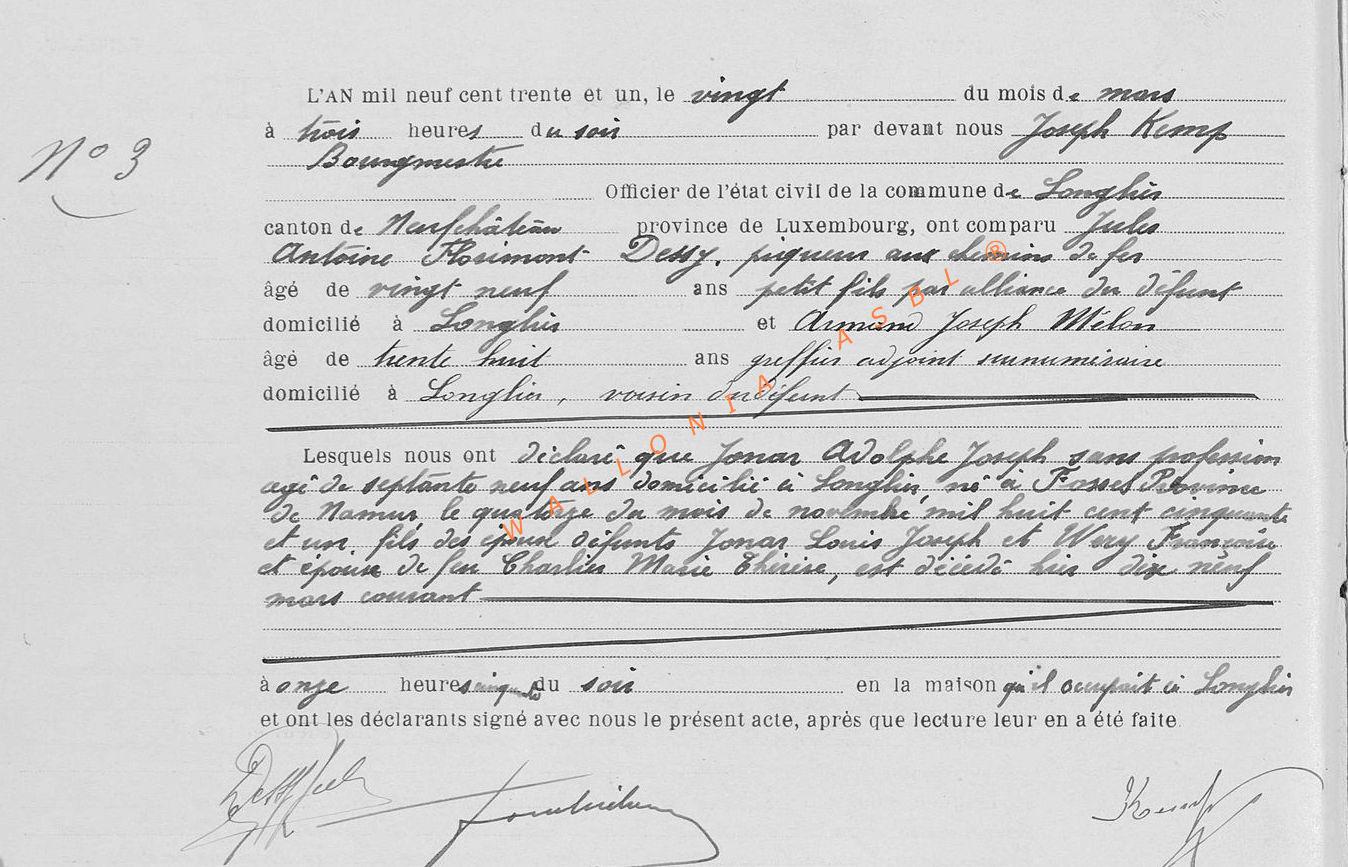 L'AN mil neuf cent trente et un, le vingt du mois de mars
N° 3
à trois heures du soir par devant nous Joseph Kemp
Bourgmestre
Officier de l'état civil de la commune de Longlier
canton de Neufchâteau province de Luxembourg, ont comparu Jules
Antoine Florimont Dessy, piqueur aux chemins de fer
âgé de vingt neuf ans petit fils par alliance du défunt
domicilié à Longlier et Armand Joseph Mélon
âgé de trente huit ans greffier adjoint surnuméraire
domicilié à Longlier, voisin du défunt
Lesquels nous ont déclaré que Jonar Adolphe Joseph sans profession
agé de septante neuf ans domicilié à Longlier, né à Fosses Province
de Namur, le quatorze du mois de novembre mil huit cent cinquante
et un, fils des époux défunts Jonar Louis Joseph et Wery Françoise
et époux de feu Charlier Marie Thérèse, est décédé hier dix neuf
mars courant
à onze heures du soir en la maison qu'il occupait à Longlier
et ont les déclarants signé avec nous le présent acte, après que lecture leur en a été faite.
Kemp
WALLONIA ASBL ®